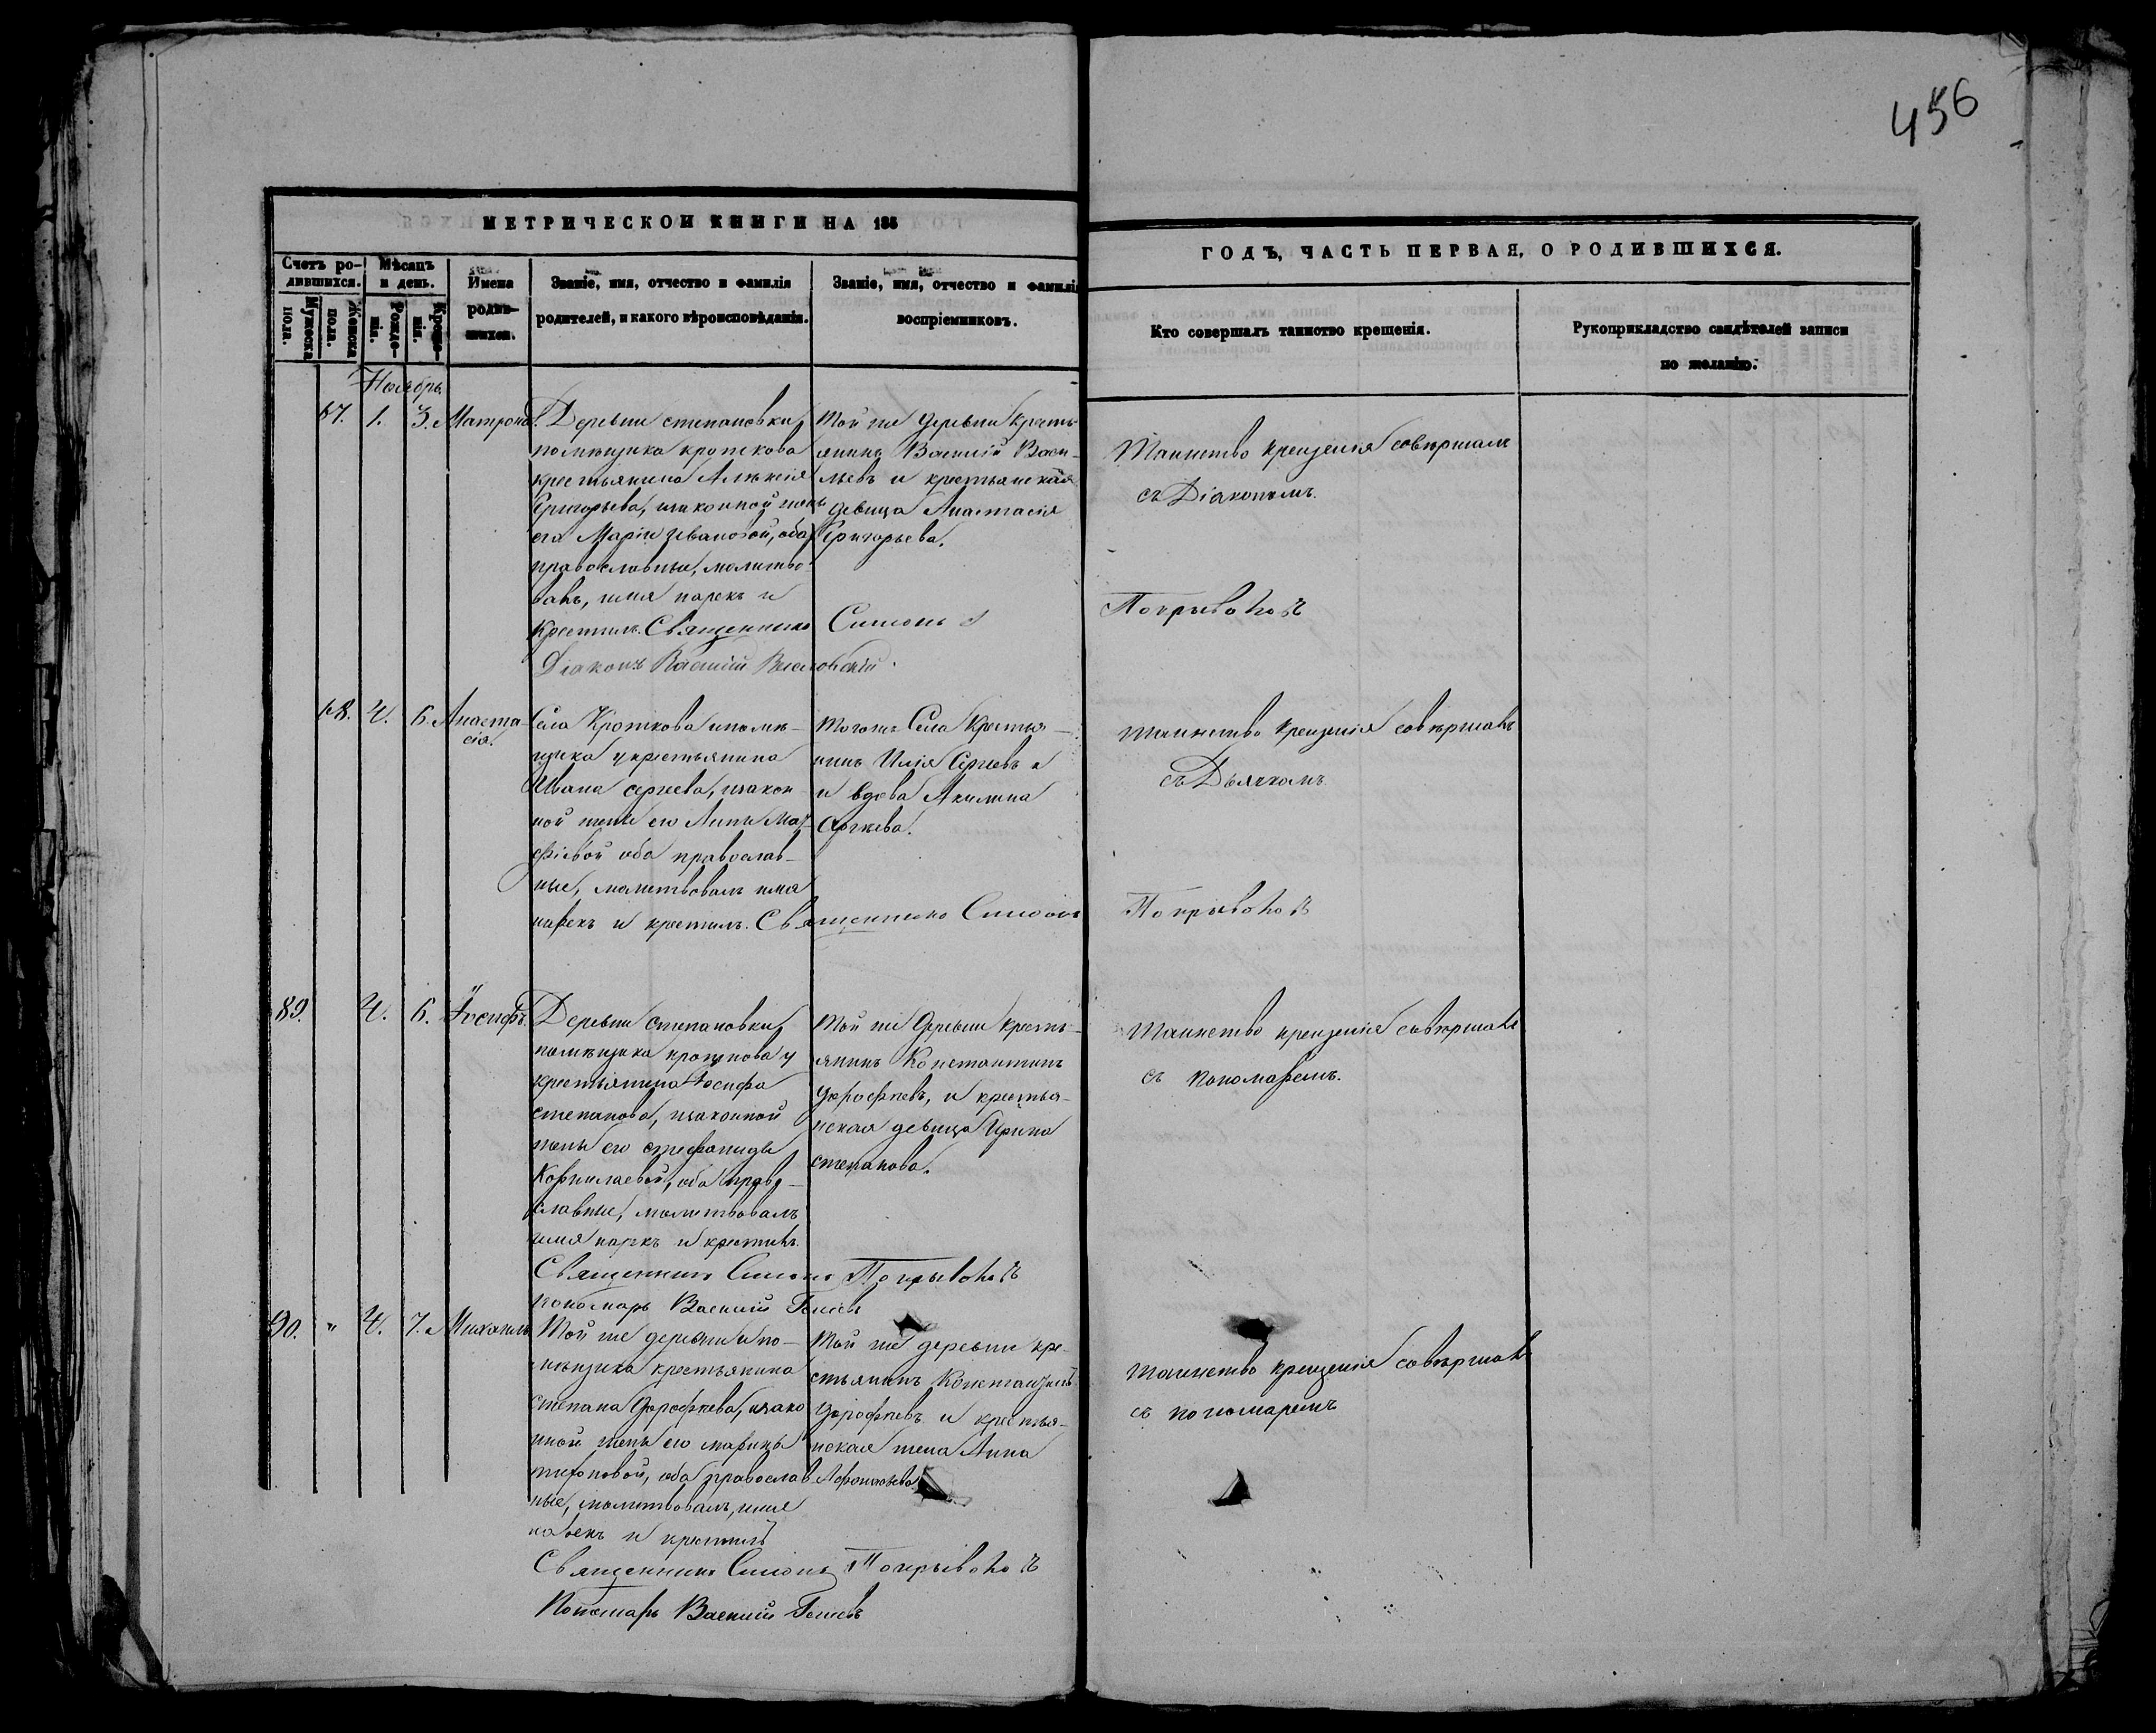 456
МЕТРИЧЕСКОЙ КНИГИ НА 185
ГОДЪ, ЧАСТЬ ПЕРВАЯ, О РОДИВШИХСЯ.
Счетъ ро-
дившихся.
Мужеска
пола.
Женска
пола.
Мѣсяцъ
и день.
Рожде-
нія.
Креще-
нія.
Имена
родив-
шихся.
Званіе, имя, отчество и фамилія
родителей, и какого вѣроисповѣданія.
Званіе, имя, отчество и фамилія
воспріемниковъ.
Кто совершалъ таинство крещенія.
Рукоприкладство свидѣтелей записи
по желанію.
Ноябрь
87. 1. 3. Матрона.
Деревни степановки,
помѣщика кроткова
крестьянина Алексія
Григорьева, изаконной жены
его Маріи Ивановой, оба
православные, молитво
валъ, имя нарекъ и
крестилъ. Священникъ Симонъ Покрыволовъ
Діаконъ Василій
Той же деревни кресть
янинъ Василій Васи-
льевъ и крестьянская
девица Анастасія
Григорьева.
Таинство крещенія совершалъ
съ Діакономъ.
88. 4. 6. Анаста-
сія.
Села Кроткова ипомѣ-
щика укрестьянина
Ивана сергеева, изакон-
ной жены его Анны
оба православ-
ные, молитвовалъ имя
нарекъ и крестилъ. Священникъ Симонъ
Тогоже Села Крестья-
нинъ Илія Сергеевъ
и вдова Акилина
Сергеева.
Таинство крещенія совершалъ
съ Дьячкомъ
89. 4. 6. Іосифъ.
Деревни степановки,
помѣщика кроткова у
крестьянина Іосифа
степанова, изаконной
жены его стефаниды
Корнилаевой, оба право-
славные, молитвовалъ
имя нарекъ и крестилъ.
Священникъ Симонъ
пономарь Василій
Той же деревни кресть-
янинъ Константинъ
дорофеевъ, и крестья-
нская девица Ирина
степанова.
Таинство крещенія совершалъ
съ пономаремъ.
90. " 4. 7. Михаилъ
Той же деревни и по-
мѣщика крестьянина
степана Дорофеева, изако
нной жены его марины
тихоновой, оба православ
ные, молитвовалъ, имя
нарекъ и крестилъ
Священникъ Симонъ
Пономарь Василій
Той же деревни кре-
стьянинъ Константинъ
дорофеевъ и крестья-
нская жена Анна
Таинство крещенія совершалъ
съ пономаремъ